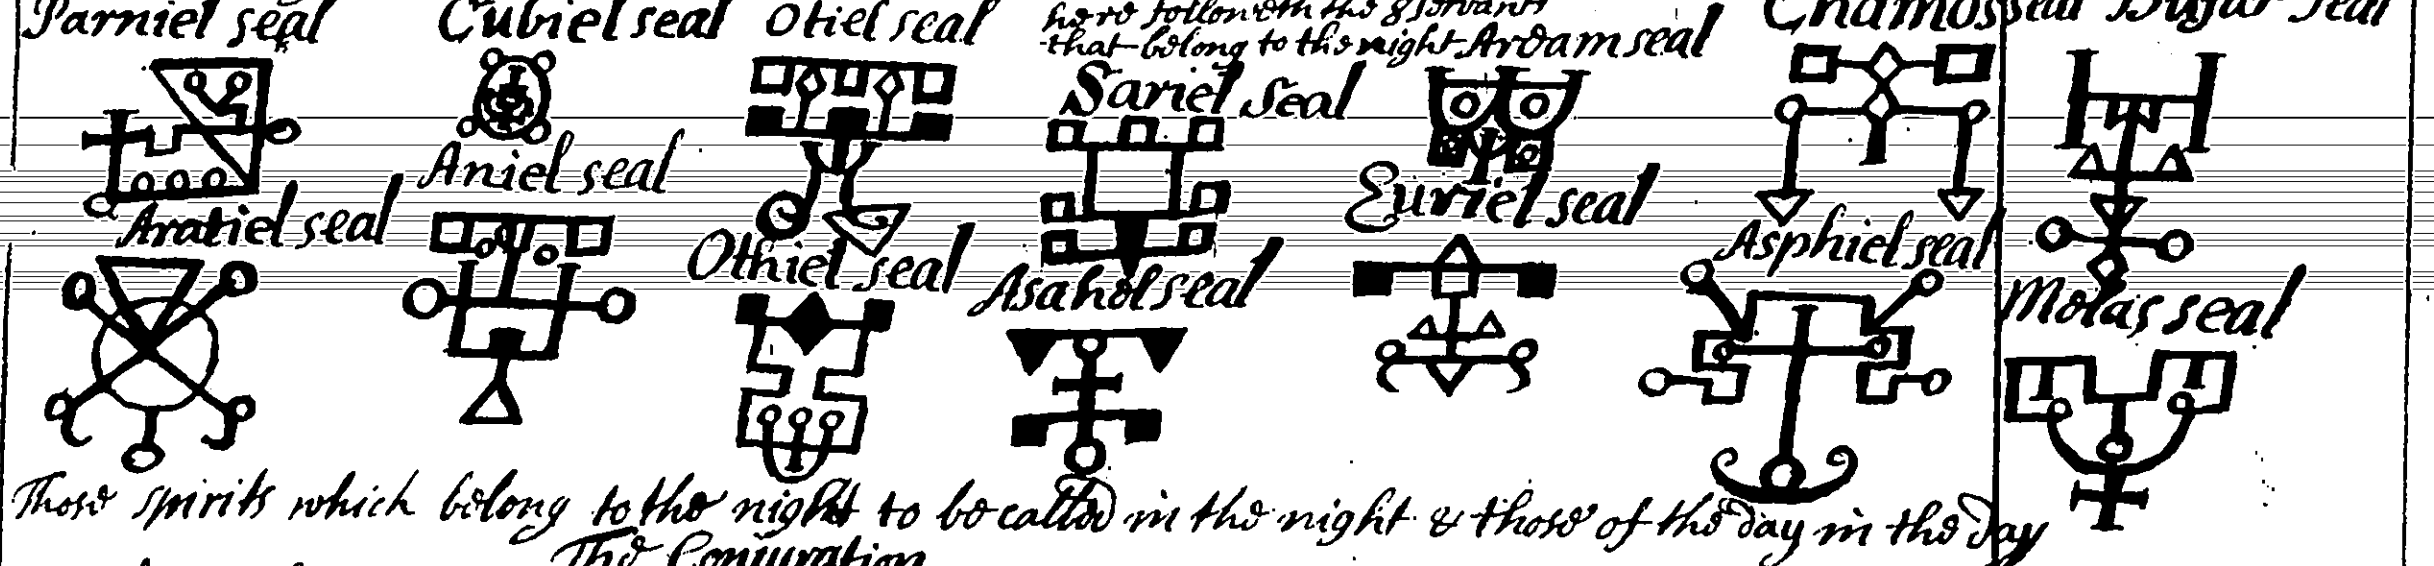 Parniel seal
Cubiel seal
Otiel seal
here followeth the 8 servants
that belong to the night Ardam seal
Chamos seal
seal
Aratiel seal
Aniel seal
Othiel seal
Sariel seal
Asahol seal
Euriel seal
Asphiel seal
Molas seal
Those spirits which belong to the night to be called in the night & those of the day in the day
The Conjuration